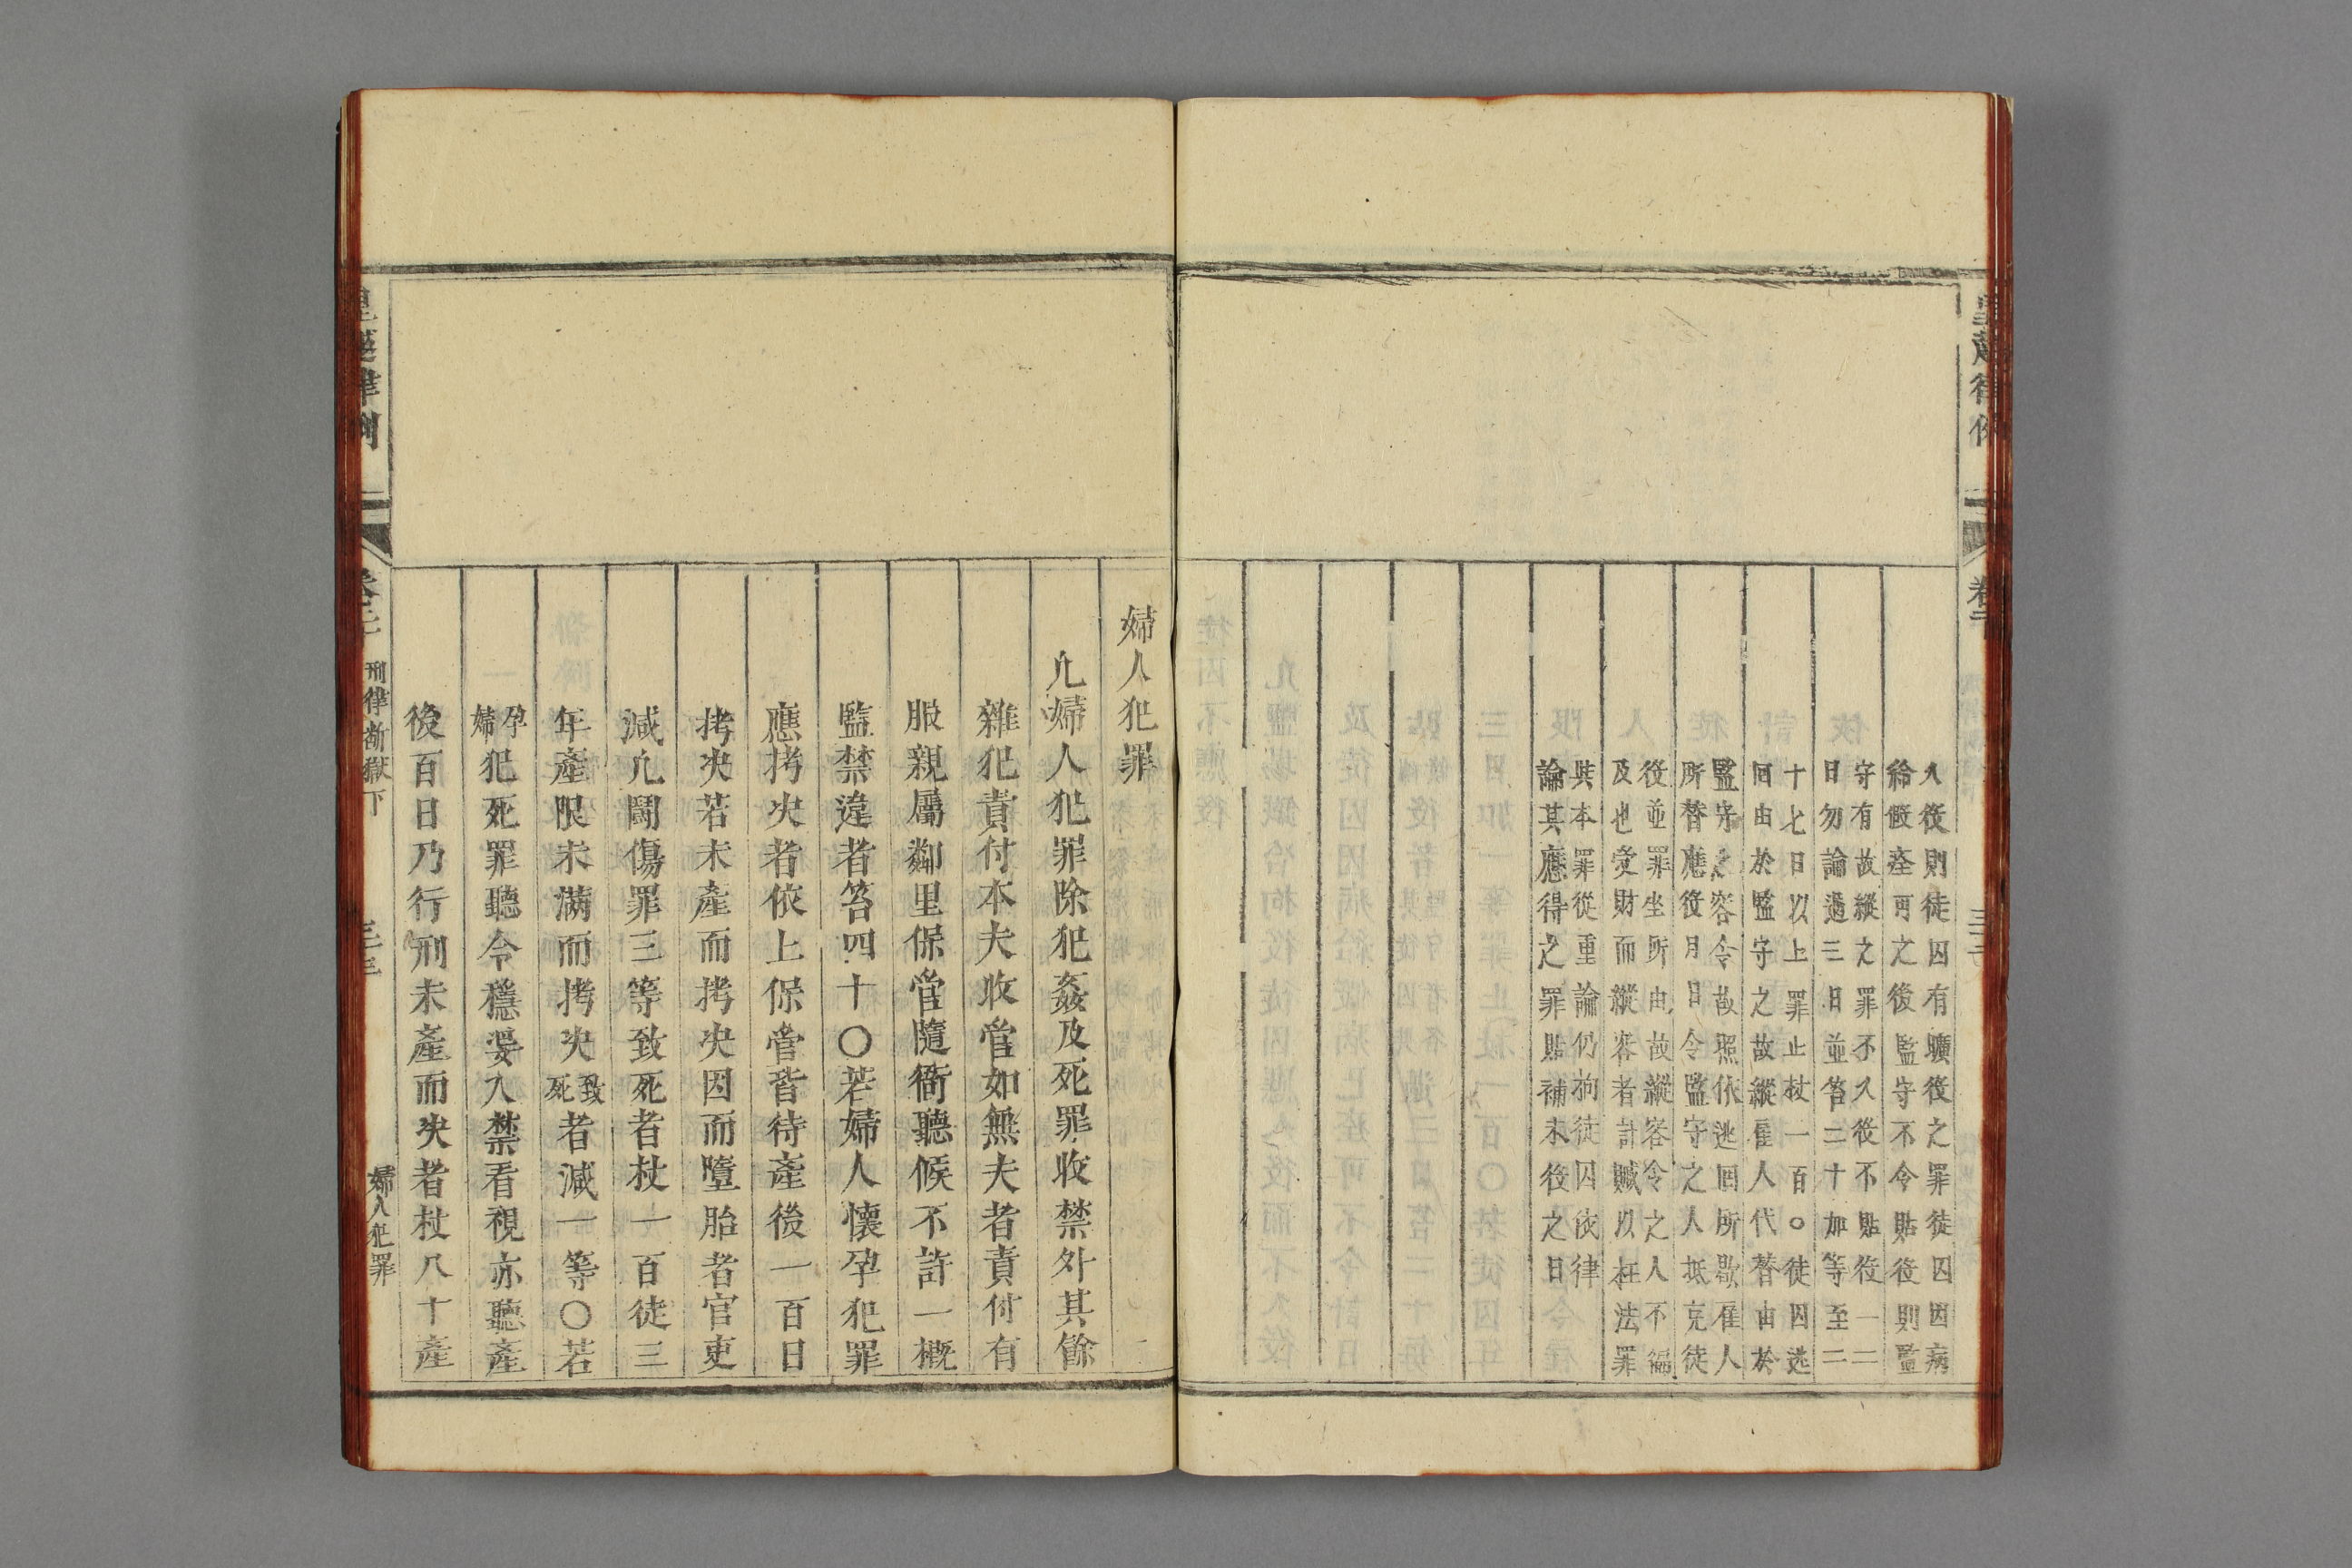 皇越律例
卷二十
入役則徒囚有曠役之罪徒囚因病
給假痊可之後監守不令貼役則監
守有故縱之罪不入役不貼役一二
日勿論過三日並笞二十加等至二
十七日以上罪止杖一百○徒囚逃
回由於監守之故縱雇人代替由於
監守之容令故照依逃回所歇雇人
所替應役月日令監守之人抵充徒
役並罪坐所由故縱容令之人不徧
及也受財而縱容者計贓以枉法罪
其本罪從重論仍拘徒囚依律
論其應得之罪貼補未役之日
婦人犯罪
凢婦人犯罪除犯姦及死罪收禁外其餘
雜犯責付本夫收管如無夫者責付有
服親屬鄰里保管隨衙聽候不許一概
監禁違者笞四十○若婦人懷孕犯罪
應拷決者依上保管皆待產後一百日
拷決若未產而拷決因而墮胎者官吏
減凢鬬傷罪三等致死者杖一百徒三
年產限未滿而拷決致死者減一等○若
孕婦犯死罪聽令穩婆入禁看視亦聽產
後百日乃行刑未產而決者杖八十產
皇越律例
卷二十
刑律斷獄下
婦人犯罪